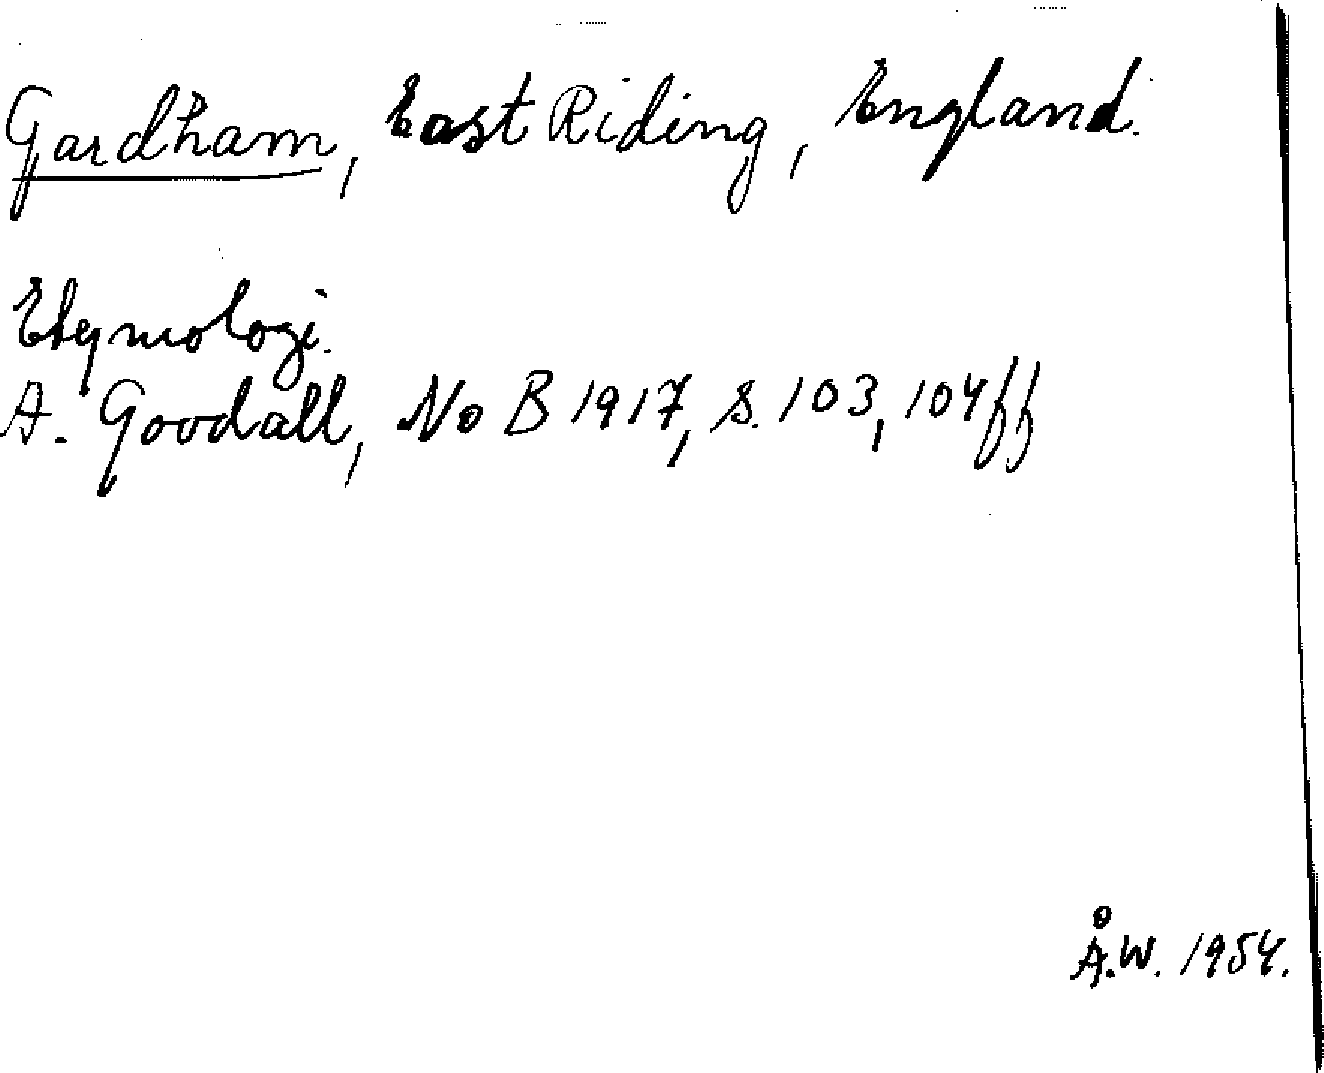 Gardham, East Riding, England.
Etymologi.
A. Goodall, No B 1917, s. 103, 104ff
Å.W. 1954.